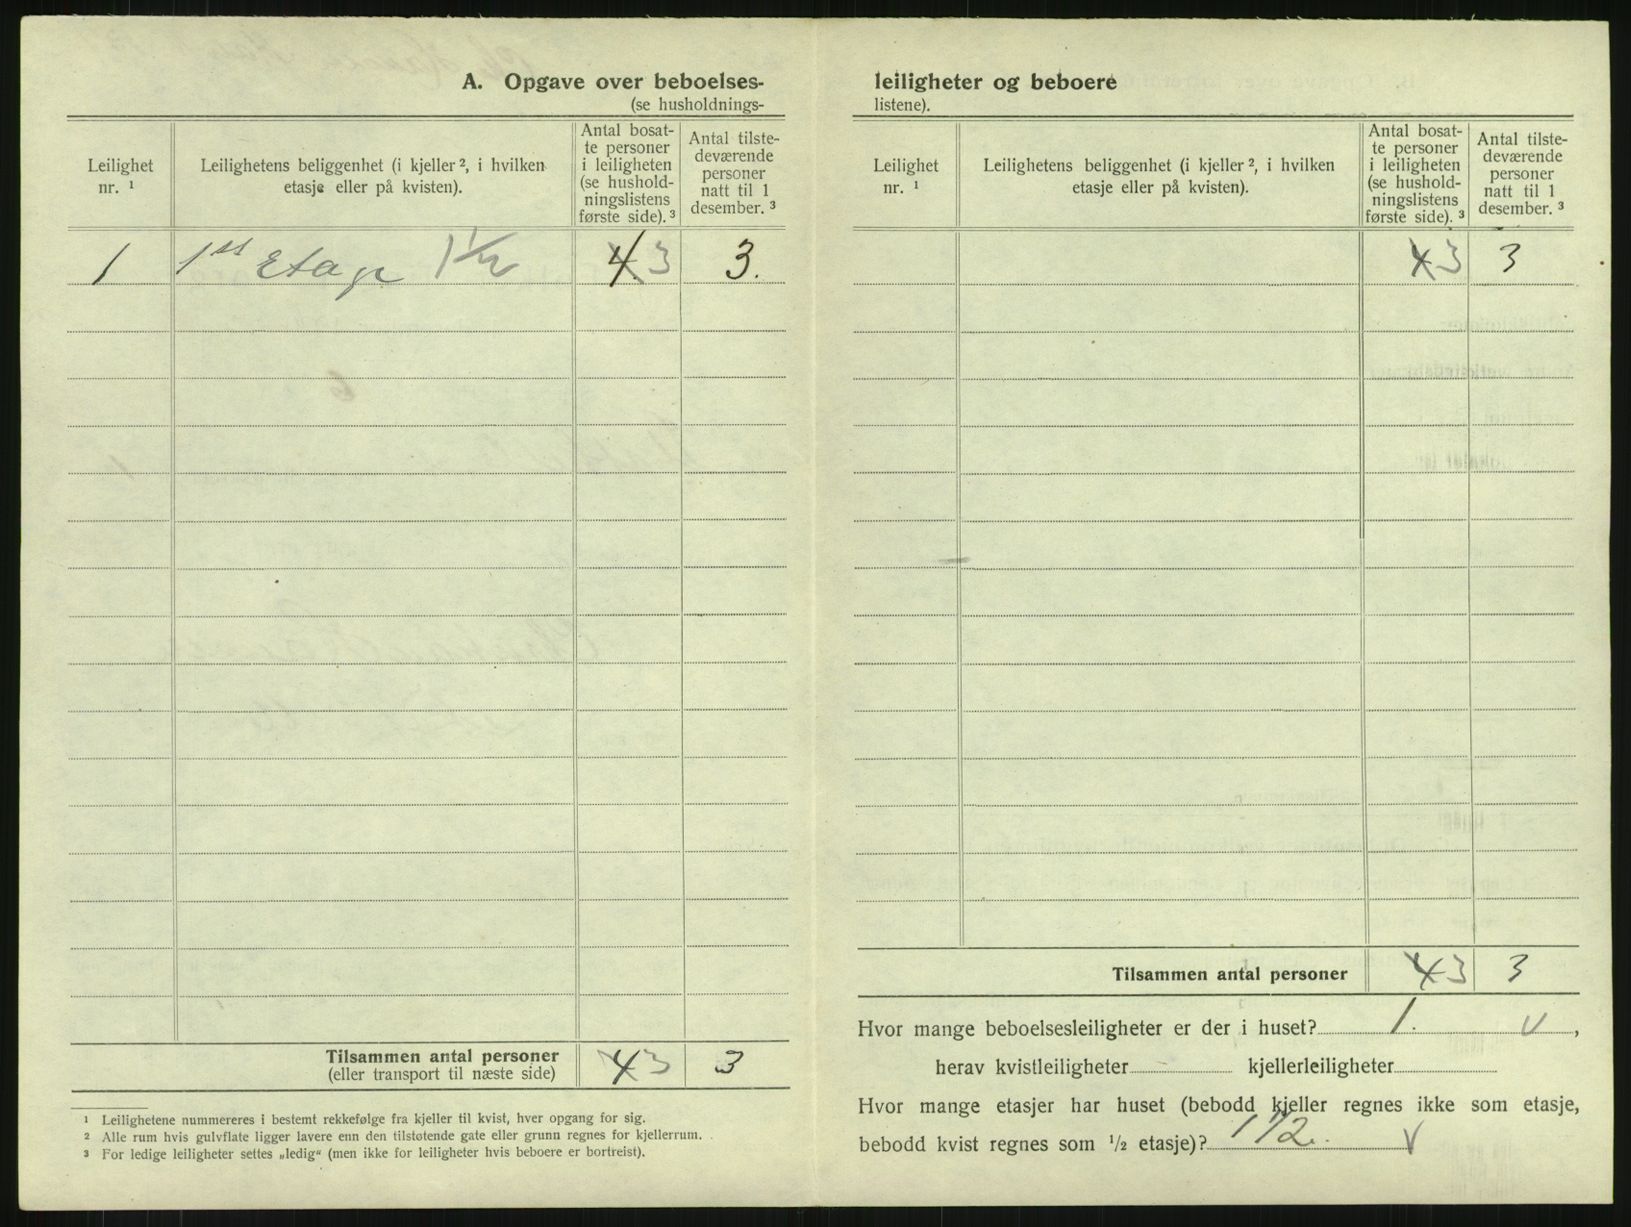 A. Opgave over beboelses-
(se husholdnings-
Leilighet
nr. ¹
Leilighetens beliggenhet (i kjeller ², i hvilken
etasje eller på kvisten).
Antal bosat-
te personer
i leiligheten
(se hushold-
ningslistens
første side). ³
Antal tilste-
deværende
personer
natt til 1
desember. ³
1 1st Etage 1½ 4 3 3.
Tilsammen antal personer 4 3 3
(eller transport til næste side)
¹ Leilighetene nummereres i bestemt rekkefølge fra kjeller til kvist, hver opgang for sig.
² Alle rum hvis gulvflate ligger lavere enn den tilstøtende gate eller grunn regnes for kjellerrum.
³ For ledige leiligheter settes „ledig“ (men ikke for leiligheter hvis beboere er bortreist).
leiligheter og beboere
listene).
Leilighet
nr. ¹
Leilighetens beliggenhet (i kjeller ², i hvilken
etasje eller på kvisten).
Antal bosat-
te personer
i leiligheten
(se hushold-
ningslistens
første side). ³
Antal tilste-
deværende
personer
natt til 1
desember. ³
4 3 3
Tilsammen antal personer 4 3 3
Hvor mange beboelsesleiligheter er der i huset? 1. v,
herav kvistleiligheter - kjellerleiligheter
Hvor mange etasjer har huset (bebodd kjeller regnes ikke som etasje,
bebodd kvist regnes som ½ etasje)? 1 1/2. v